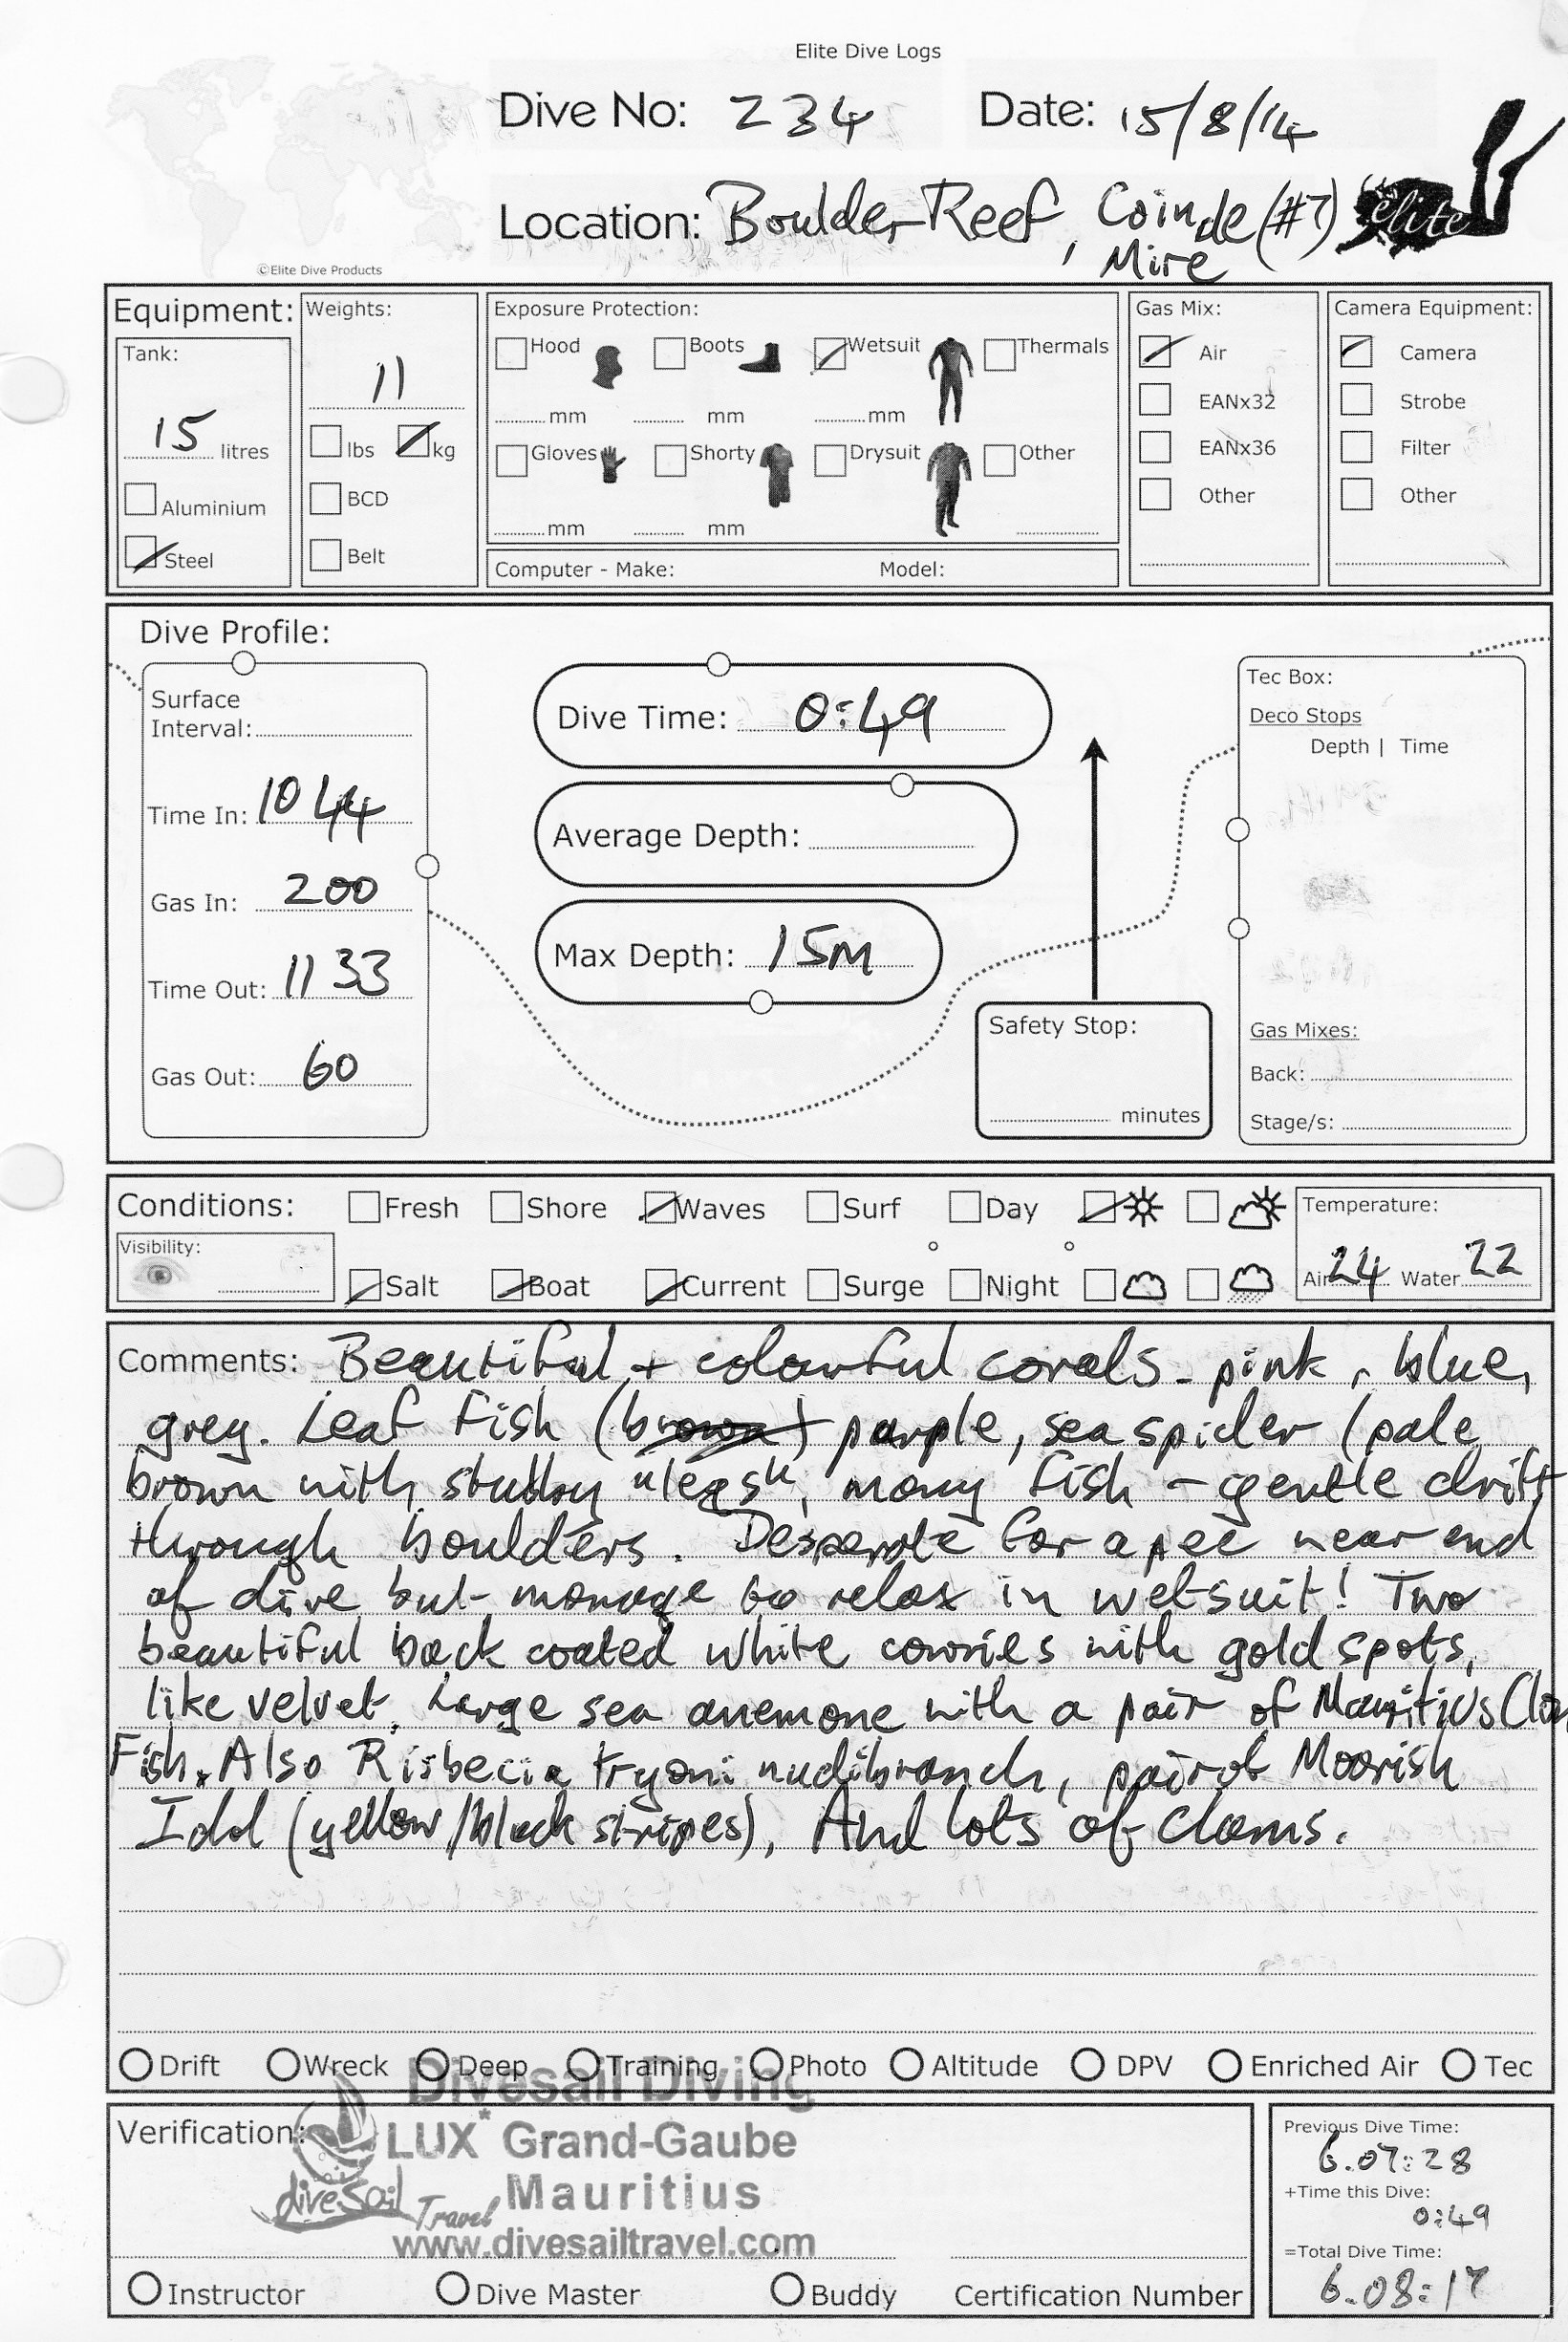 Elite Dive Logs
Dive No: 234 Date: 15/8/14
Location: Boulder Reef, Coin de (#7)
Mire
elite
©Elite Dive Products
Equipment: Weights: Exposure Protection: Gas Mix: Camera Equipment:
Tank: Hood Boots Wetsuit Thermals Air Camera
11 mm mm mm EANx32 Strobe
15 litres lbs kg Gloves Shorty Drysuit Other EANx36 Filter
Aluminium BCD Other Other
mm mm
Steel Belt Computer - Make: Model:
Dive Profile:
Surface
Interval:
Time In: 10 44
Gas In: 200
Time Out: 11 33
Gas Out: 60
Dive Time: 0:49
Average Depth:
Max Depth: 15M
Safety Stop:
minutes
Tec Box:
Deco Stops
Depth | Time
Gas Mixes:
Back:
Stage/s:
Conditions: Fresh Shore Waves Surf Day Temperature:
Visibility:
Salt Boat Current Surge Night Air 24 Water 22
Comments: Beautiful + colourful corals - pink, blue,
grey. Leaf Fish (brown) purple, sea spider (pale
brown with stubby "legs", many fish - gentle drift
through boulders. Desperate for a pee near end
of dive but manage to relax in wetsuit! Two
beautiful back coated white cowries with gold spots,
like velvet. Large sea anemone with a pair of Mauritius Clown
Fish. Also Risbecia tryoni nudibranch, pair of Moorish
Idol (yellow/black stripes), And lots of clams.
Drift Wreck Deep Training Photo Altitude DPV Enriched Air Tec
Verification:
Divesail Diving
LUX* Grand-Gaube
Mauritius
diveSail Travel
www.divesailtravel.com
Instructor Dive Master Buddy Certification Number
Previous Dive Time:
6.07:28
+Time this Dive:
0:49
=Total Dive Time:
6.08:17